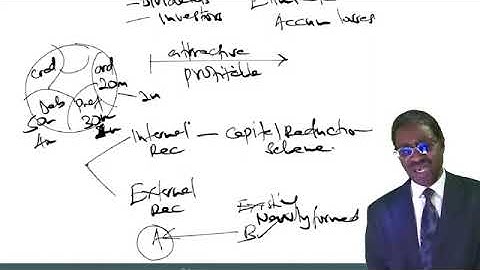 Investors
Accum losses
cred
ord
20m
attractive
profitable
2m
Debs
Pref
50m
30m
4m
Internal — Capital Reduction
Rec
Scheme.
External
Rec
Existing
Newly formed
A
B